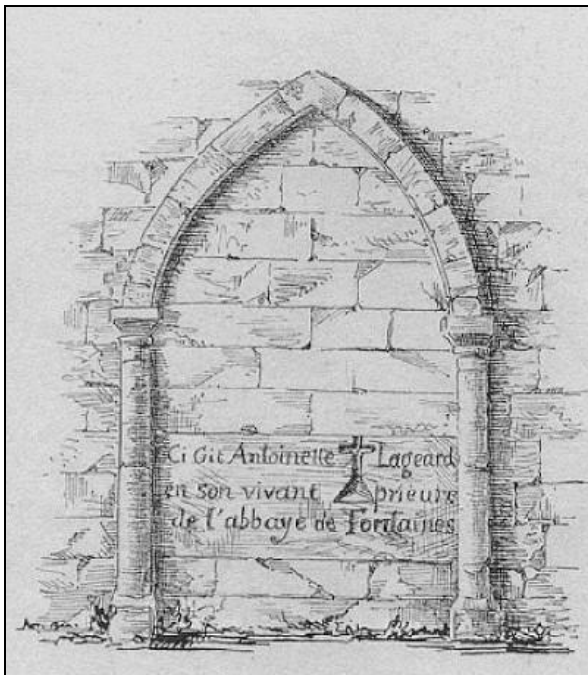 Ci Git Antoinette Lageard
en son vivant prieure
de l'abbaye de Fontaines